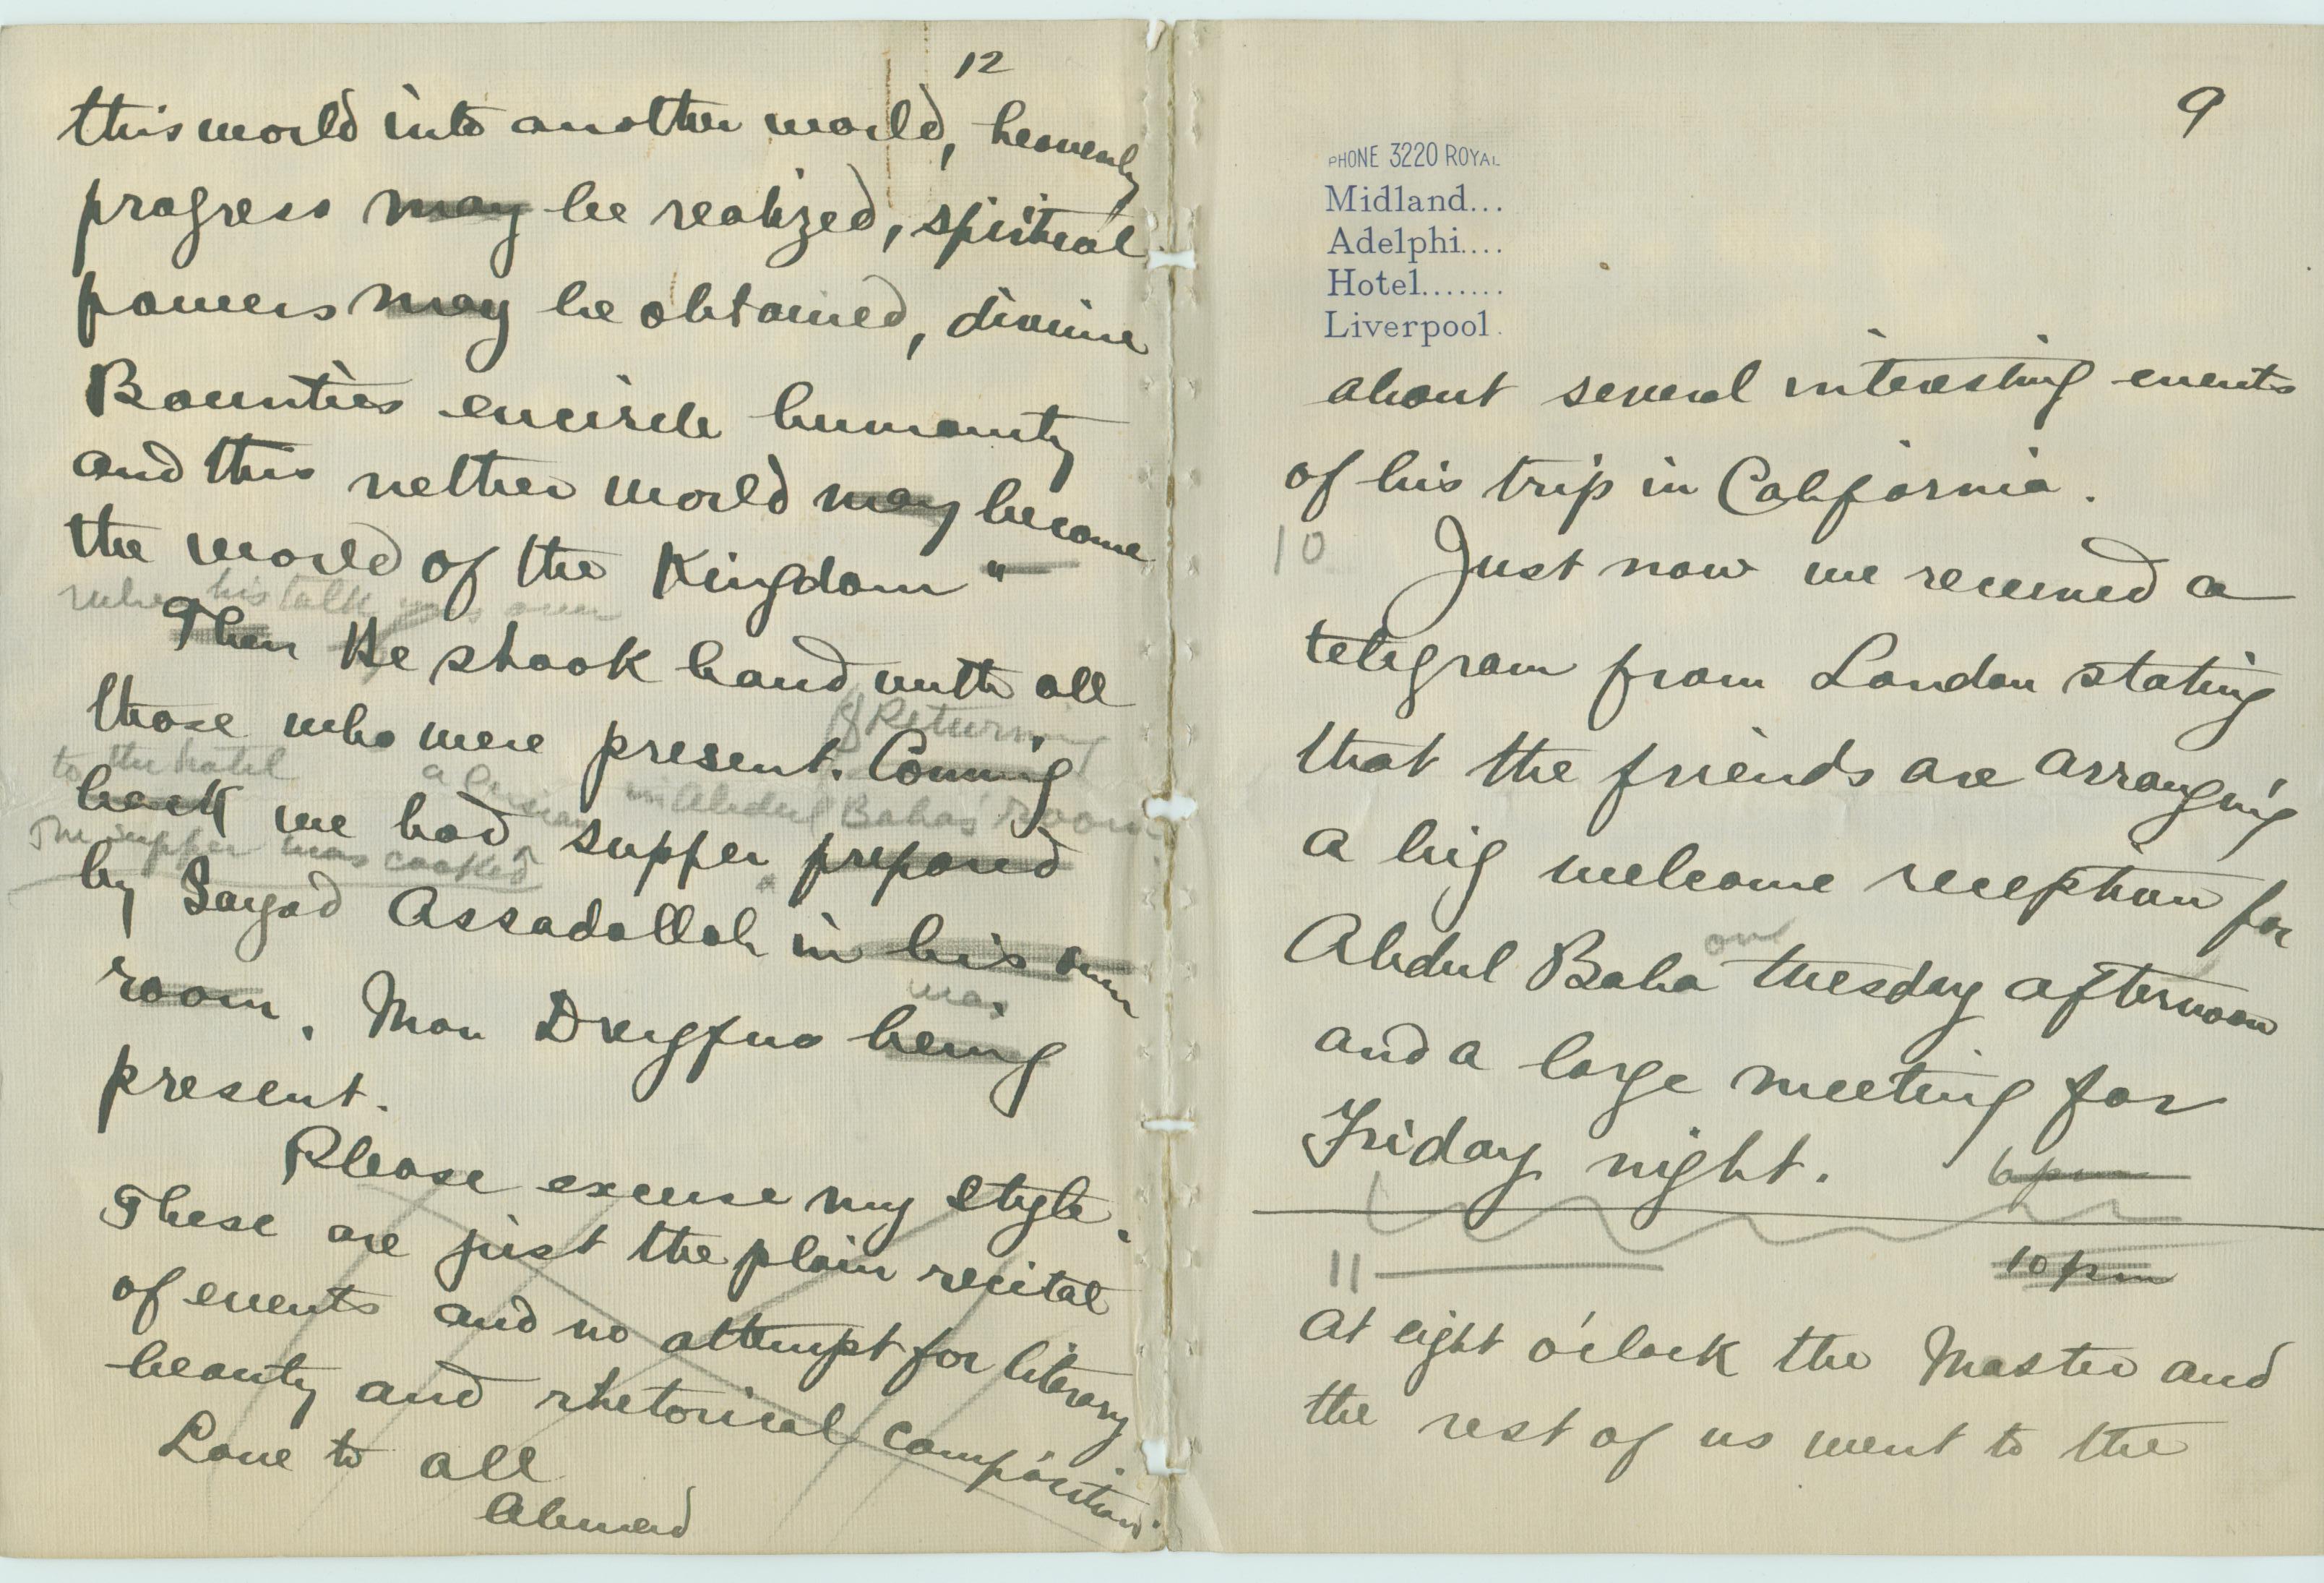 12
this world into another world, heavenly
progress may be realized, spiritual
powers may be obtained, divine
Bounties encircle humanity
and this nether world may become
the world of the Kingdom"
when his talk was over
Then He shook hand with all
those who were present. Coming
Returning
to the hotel
back we had supper prepared
a Persian in Abdul Baha's room
The supper was cooked
by Sayad Assadollah in his own
room. Mon Dreyfus being
was
present.
Please excuse my style.
These are just the plain recital
of events and no attempt for literary
beauty and rhetorical composition.
Love to all
Ahmad
9
PHONE 3220 ROYAL
Midland...
Adelphi....
Hotel.......
Liverpool.
about several interesting events
of his trip in California.
10
Just now we received a
telegram from London stating
that the friends are arranging
a big welcome reception for
on
Abdul Baha tuesday afternoon
and a large meeting for
Friday night.
6 pm
11
10 pm
At eight o'clock the Master and
the rest of us went to the